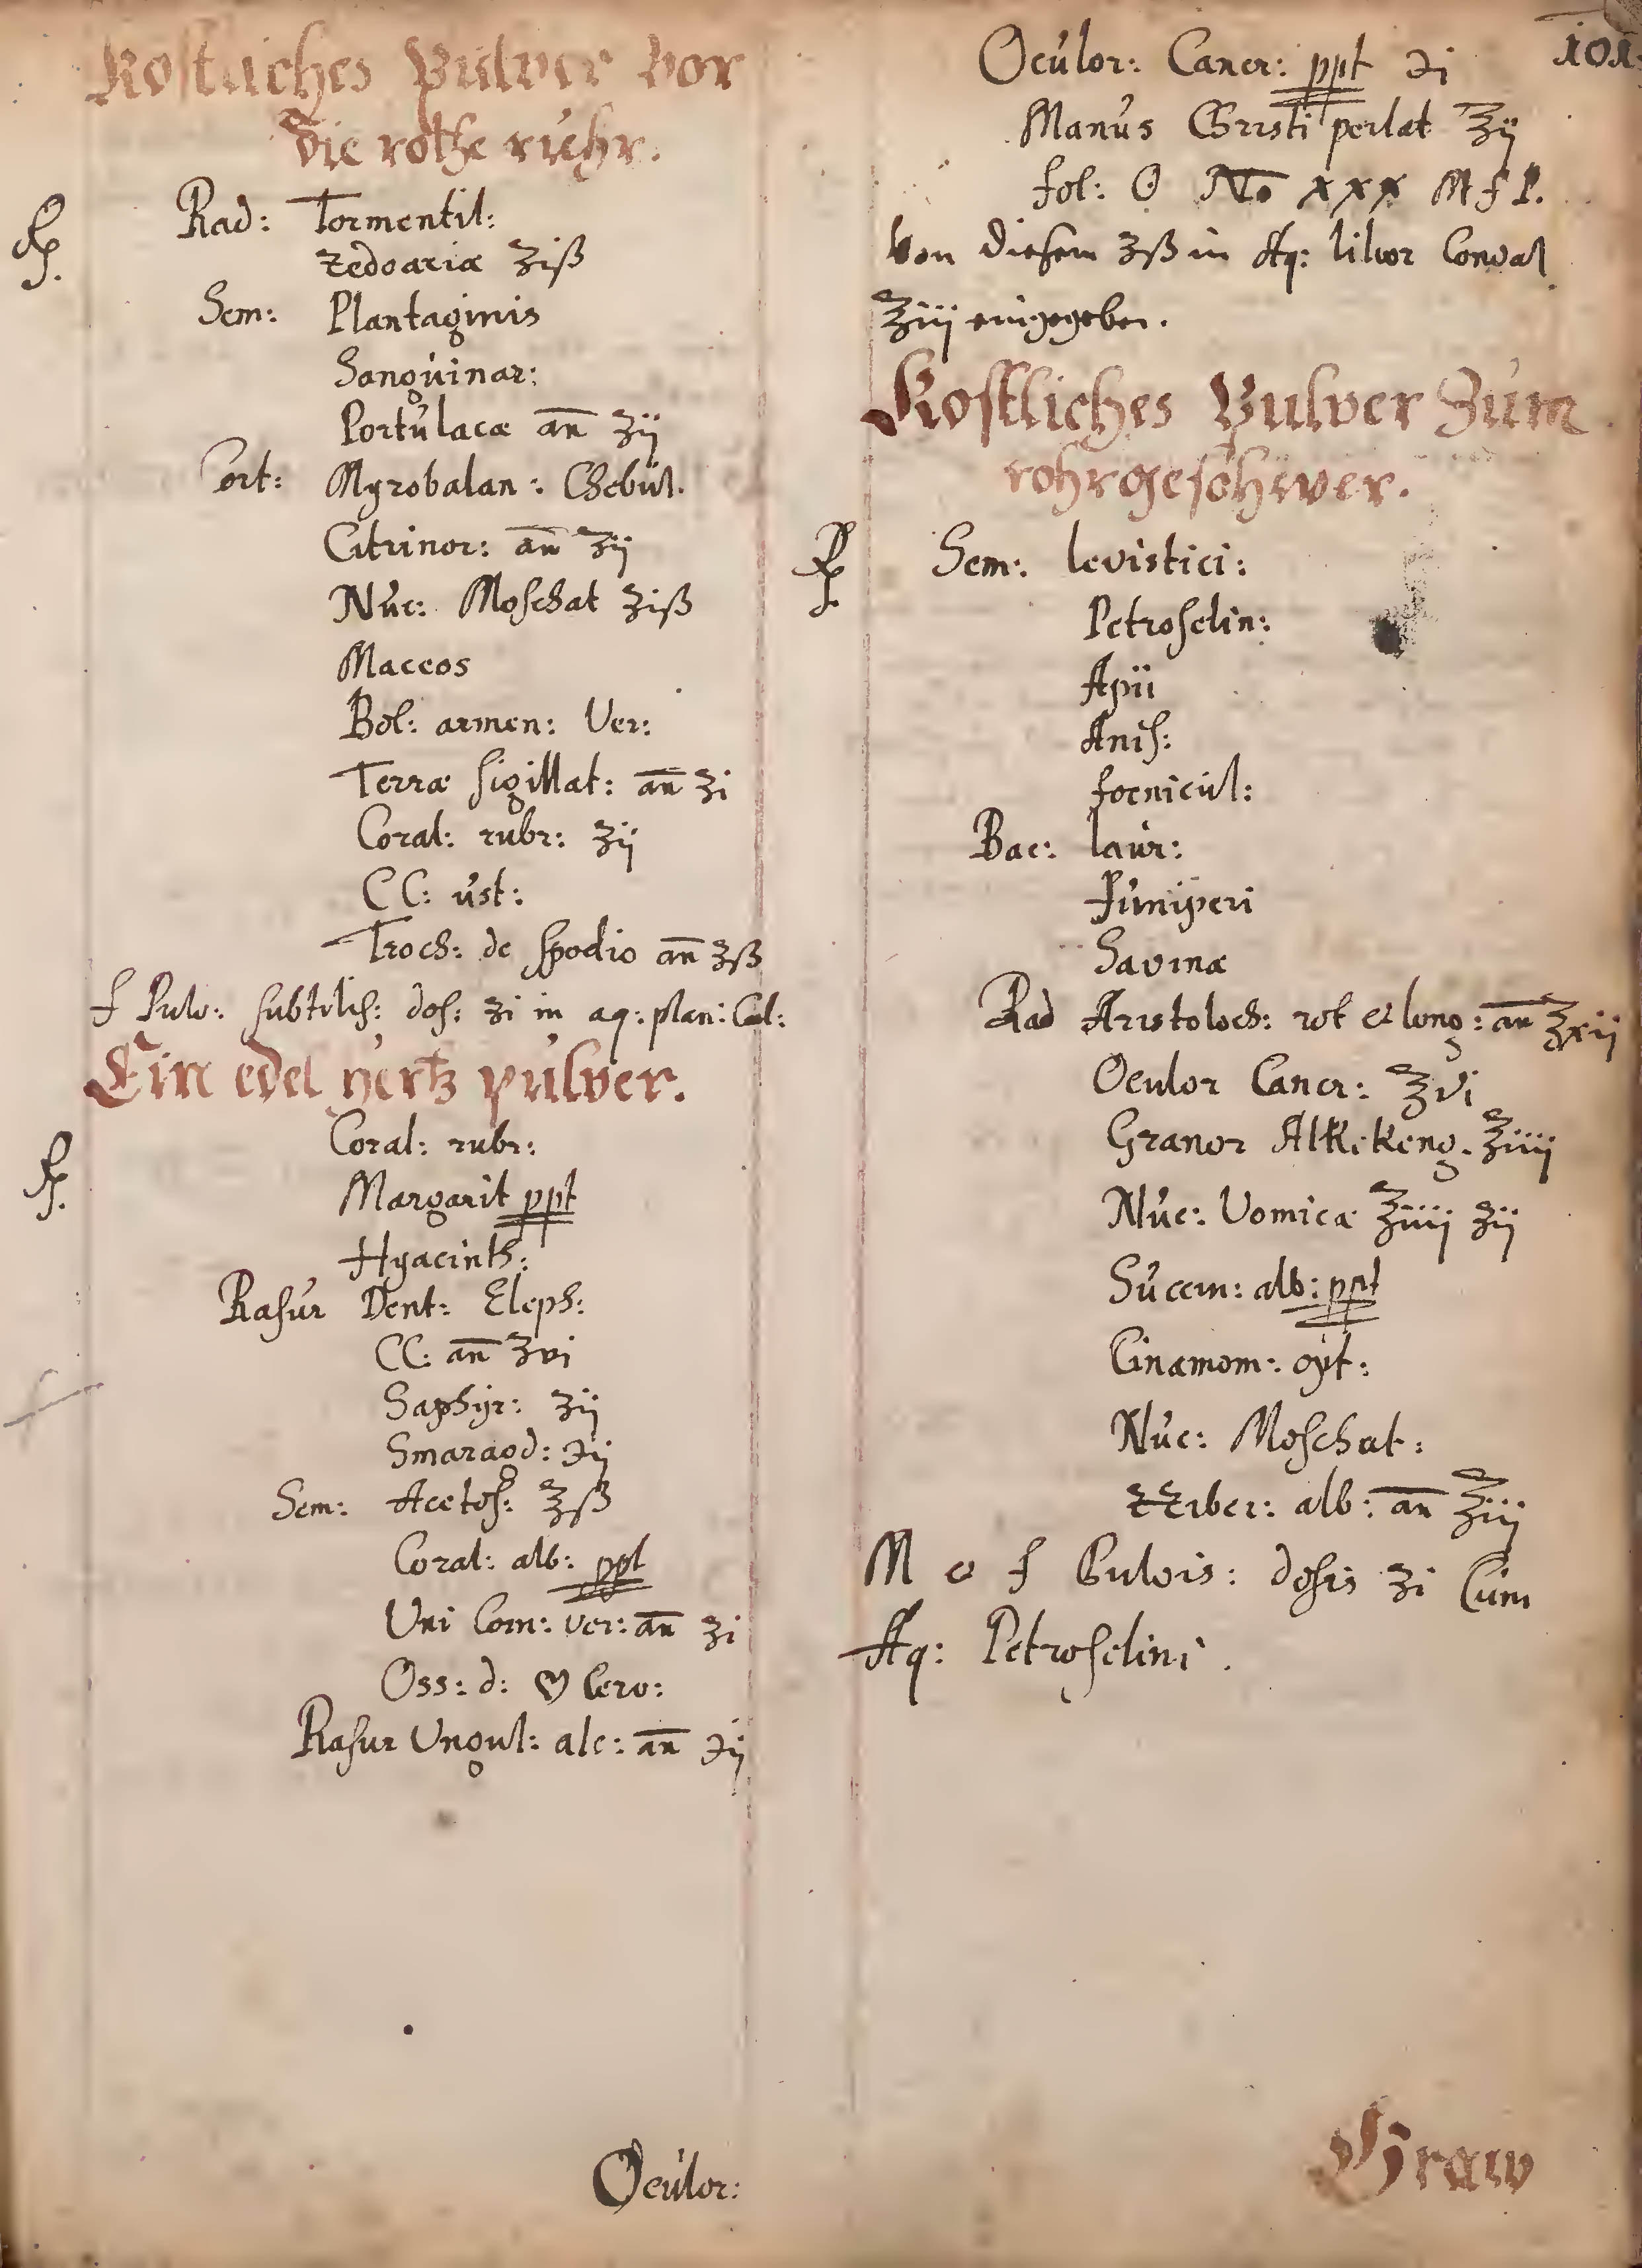 Kostliches Pulver vor
die rothe ruhr.
℞. Rad: Tormentil:
Zedoariæ ʒiß
Sem: Plantaginis
Sanguinar:
Portulacæ an̄ ʒij
Cort: Myrobalan: Chebul.
Citrinor: an̄ ʒij
Nuc: Moschat ʒiß
Maceos
Bol: armen: Ver:
Terræ sigillat: an̄ ʒi
Coral: rubr: ʒij
CC: ust:
Troch: de spodio an̄ ʒß
f Pulv: subtilis: dos: ʒi in aq: plan: Cal:
Ein edel hertz pulver.
℞. Coral: rubr:
Margarit ppt
Hyacinth:
Rasur Dent: Eleph:
CC: an̄ ʒvi
Saphyr: ʒij
Smaragd: ℈ij
Sem: Acetos: ℥ß
Coral: alb: ppt
Uni Corn: ver: an̄ ʒi
Oss: d: ♡ Cerv:
Rasur Ungul: alc: an̄ ℈ij
Oculor:
101.
Oculor: Cancr: ppt ℈i
Manus Christi perlat ℥ij
fol: ☉ No xxx M f P.
Von diesem ʒß in Aq: lilior Conval
℥iij eingegeben.
Kostliches Pulver Zum
rohrgeschwer.
℞. Sem: levistici:
Petroselin:
Apii
Anis:
foenicul:
Bac: laur:
Juniperi
Savinæ
Rad Aristoloch: rot & long: an̄ ℥xij
Oculor Cancr: ℥vi
Granor Alkekeng. ℥iiij
Nuc: Vomicæ ℥iiij ʒij
Succin: alb: ppt
Cinamom: opt:
Nuc: Moschat:
ZZiber: alb: an̄ ℥iij
M e f Pulvis: dosis ʒi Cum
Aq: Petroselini.
Graw